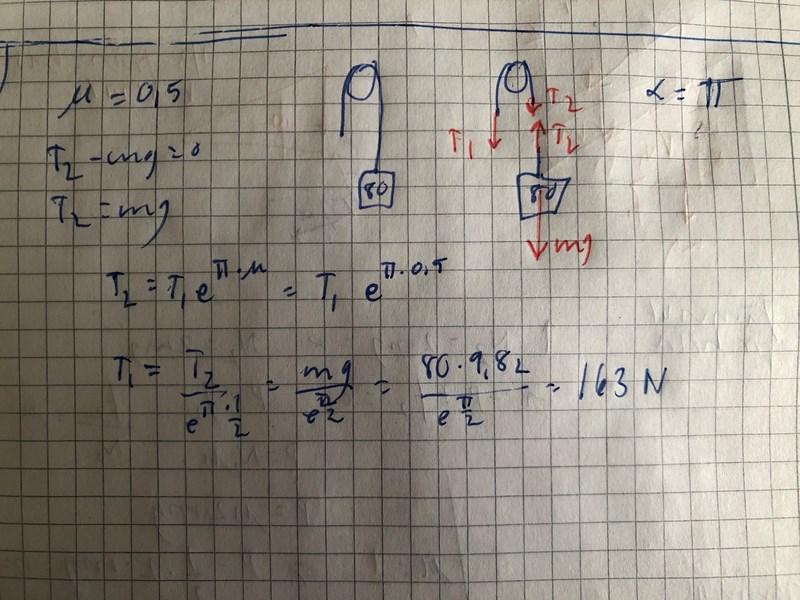 μ = 0,5
α = π
T₂ - mg = 0
T₂ = mg
80
T₁
T₂
T₂
80
mg
T₂ = T₁ e^(π·μ) = T₁ e^(π·0,5)
T₁ = T₂/e^(π·1/2) = mg/e^(π/2) = 80·9,82/e^(π/2) = 163 N